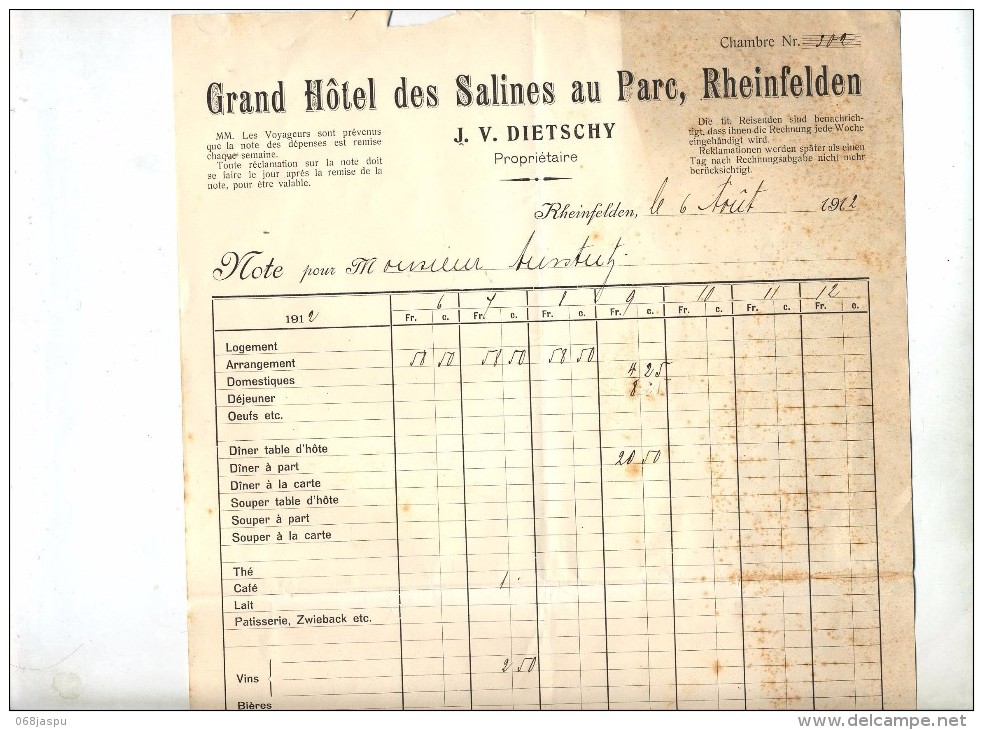 Chambre Nr. 302
Grand Hôtel des Salines au Parc, Rheinfelden
MM. Les Voyageurs sont prévenus
que la note des dépenses est remise
chaque semaine.
Toute réclamation sur la note doit
se faire le jour après la remise de la
note, pour être valable.
J. V. DIETSCHY
Propriétaire
Die tit. Reisenden sind benachrich-
tigt, dass ihnen die Rechnung jede Woche
eingehändigt wird.
Reklamationen werden später als einen
Tag nach Rechnungsabgabe nicht mehr
berücksichtigt.
Rheinfelden, le 6 Août 1912
Note pour Monsieur
1912 6 7 8 9 10 11 12
Fr. c. Fr. c. Fr. c. Fr. c. Fr. c. Fr. c. Fr. c.
Logement
Arrangement 58 50 58 50 58 50
Domestiques 4 25
Déjeuner 8
Oeufs etc.
Dîner table d'hôte
Dîner à part 20 50
Dîner à la carte
Souper table d'hôte
Souper à part
Souper à la carte
Thé
Café 1
Lait
Patisserie, Zwieback etc.
Vins 2 50
Bières
068jaspu
delcampe.net